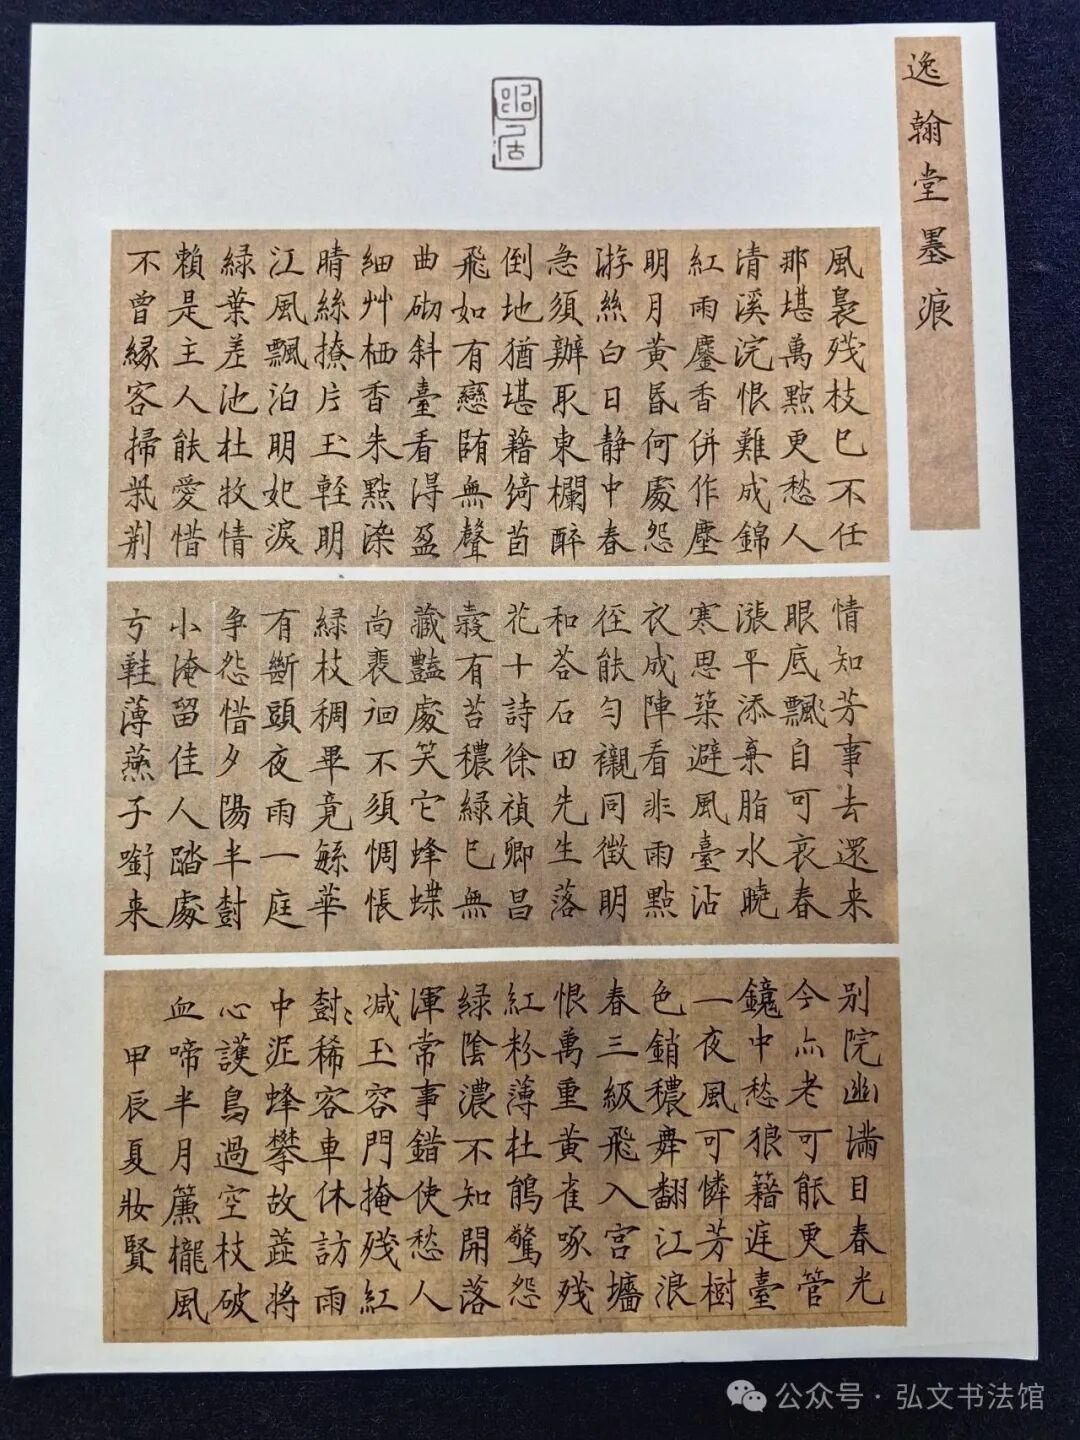 逸翰堂墨痕
風裊殘枝已不任
那堪萬點更愁人
清溪浣恨難成錦
紅雨鏖香併作塵
明月黃昏何處怨
游絲白日靜中春
急須辦取東欄醉
倒地猶堪藉綺茵
飛如有戀墮無聲
曲砌斜臺看得盈
細艸栖香朱點染
晴絲撩片玉輕明
江風飄泊明妃淚
綠葉差池杜牧情
賴是主人能愛惜
不曾緣客掃柴荊
情知芳事去還来
眼底飄〻自可哀春
漲平添棄脂水曉
寒思築避風臺沾
衣成陣看非雨點
徑能勻襯同徵明
和荅石田先生落
花十詩徐禎卿昌
穀有苔穠綠已無
藏豔處笑它蜂蝶
尚裴徊不須惆悵
綠枝稠畢竟緐華
有斷頭夜雨一庭
争怨惜夕陽半樹
小淹留佳人踏處
弓鞋薄燕子銜来
別院幽滿目春光
今亦老可能更管
鏡中愁狼籍庭臺
一夜風可憐芳樹
色銷穠舞翻江浪
春三級飛入宮墻
恨萬重黃雀啄殘
紅粉薄杜鵑驚怨
綠陰濃不知開落
渾常事錯使愁人
減玉容門掩殘紅
樹〻稀客車休訪雨
中泥蜂攀故蕋將
心護鳥過空枝破
血啼半月簾櫳風
甲辰夏妝賢
公众号·弘文书法馆